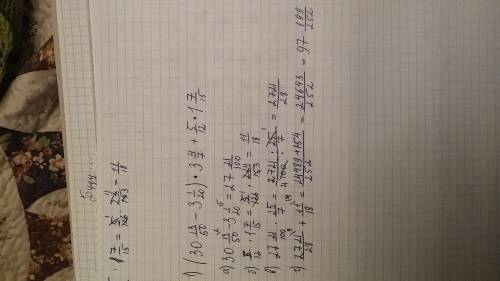 · 1 7/15 = 5/12 · 22/15 = 11/18
1) (30 13/50 - 3 1/20) · 3 4/7 + 5/12 · 1 7/15
а) 30 13/50 - 3 1/20 = 27 21/100
б) 5/12 · 1 7/15 = 5/12 · 22/15 = 11/18
в) 27 21/100 · 25/7 = 2721/100 · 25/7 = 2721/28
г) 2721/28 + 11/18 = 24489+154/252 = 24643/252 = 97 199/252